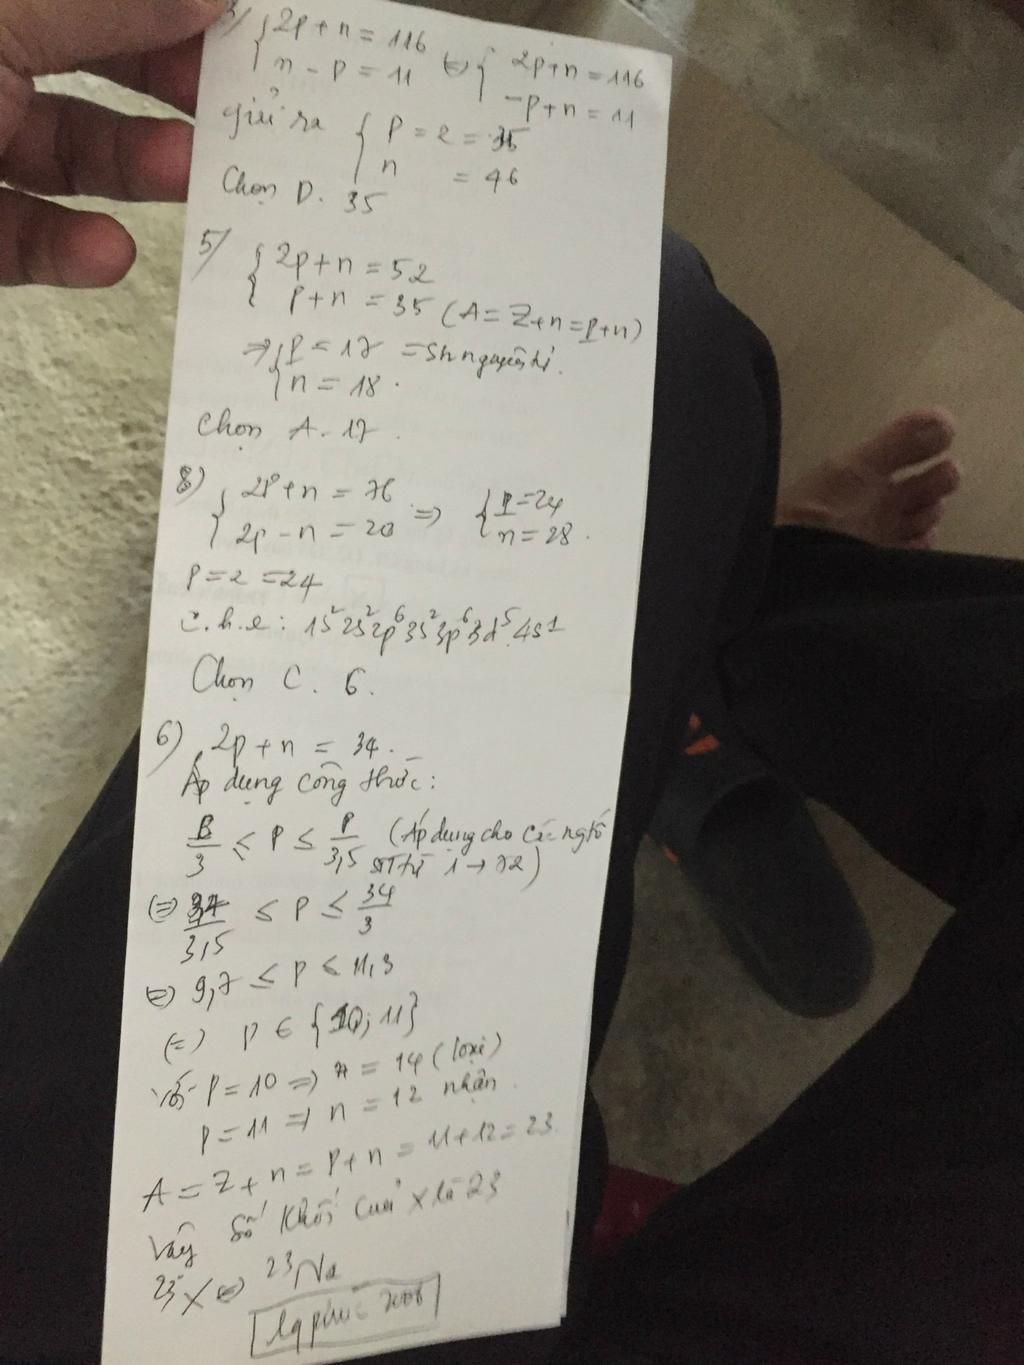 3/ { 2p+n = 116
n - p = 11 ⇔ { 2p+n = 116
-p+n = 11
giải ra { P = Z = 35
n = 46
Chọn D. 35
5/ { 2p+n = 52
p+n = 35 (A = Z+n = p+n)
⇒ { p = 17 = Sh nguyên tử.
n = 18.
Chọn A. 17.
8) { 2p+n = 76
2p-n = 20 ⇒ { p = 24
n = 28.
P = Z = 24
C.h.e: 1s² 2s² 2p⁶ 3s² 3p⁶ 3d⁵ 4s¹
Chọn C. 6.
6) { 2p+n = 34.
Áp dụng công thức:
B/3 ≤ P ≤ P/3,5 (Áp dụng cho các ngtố
STT từ 1 → 82)
⇔ 34/3,5 ≤ P ≤ 34/3
⇔ 9,7 ≤ p ≤ 11,3
(=) p ∈ {10; 11}
với p = 10 ⇒ n = 14 (loại)
p = 11 ⇒ n = 12 nhận.
A = Z + n = p+n = 11+12 = 23.
Vậy số khối của X là 23
23 X ⇔ ²³Na